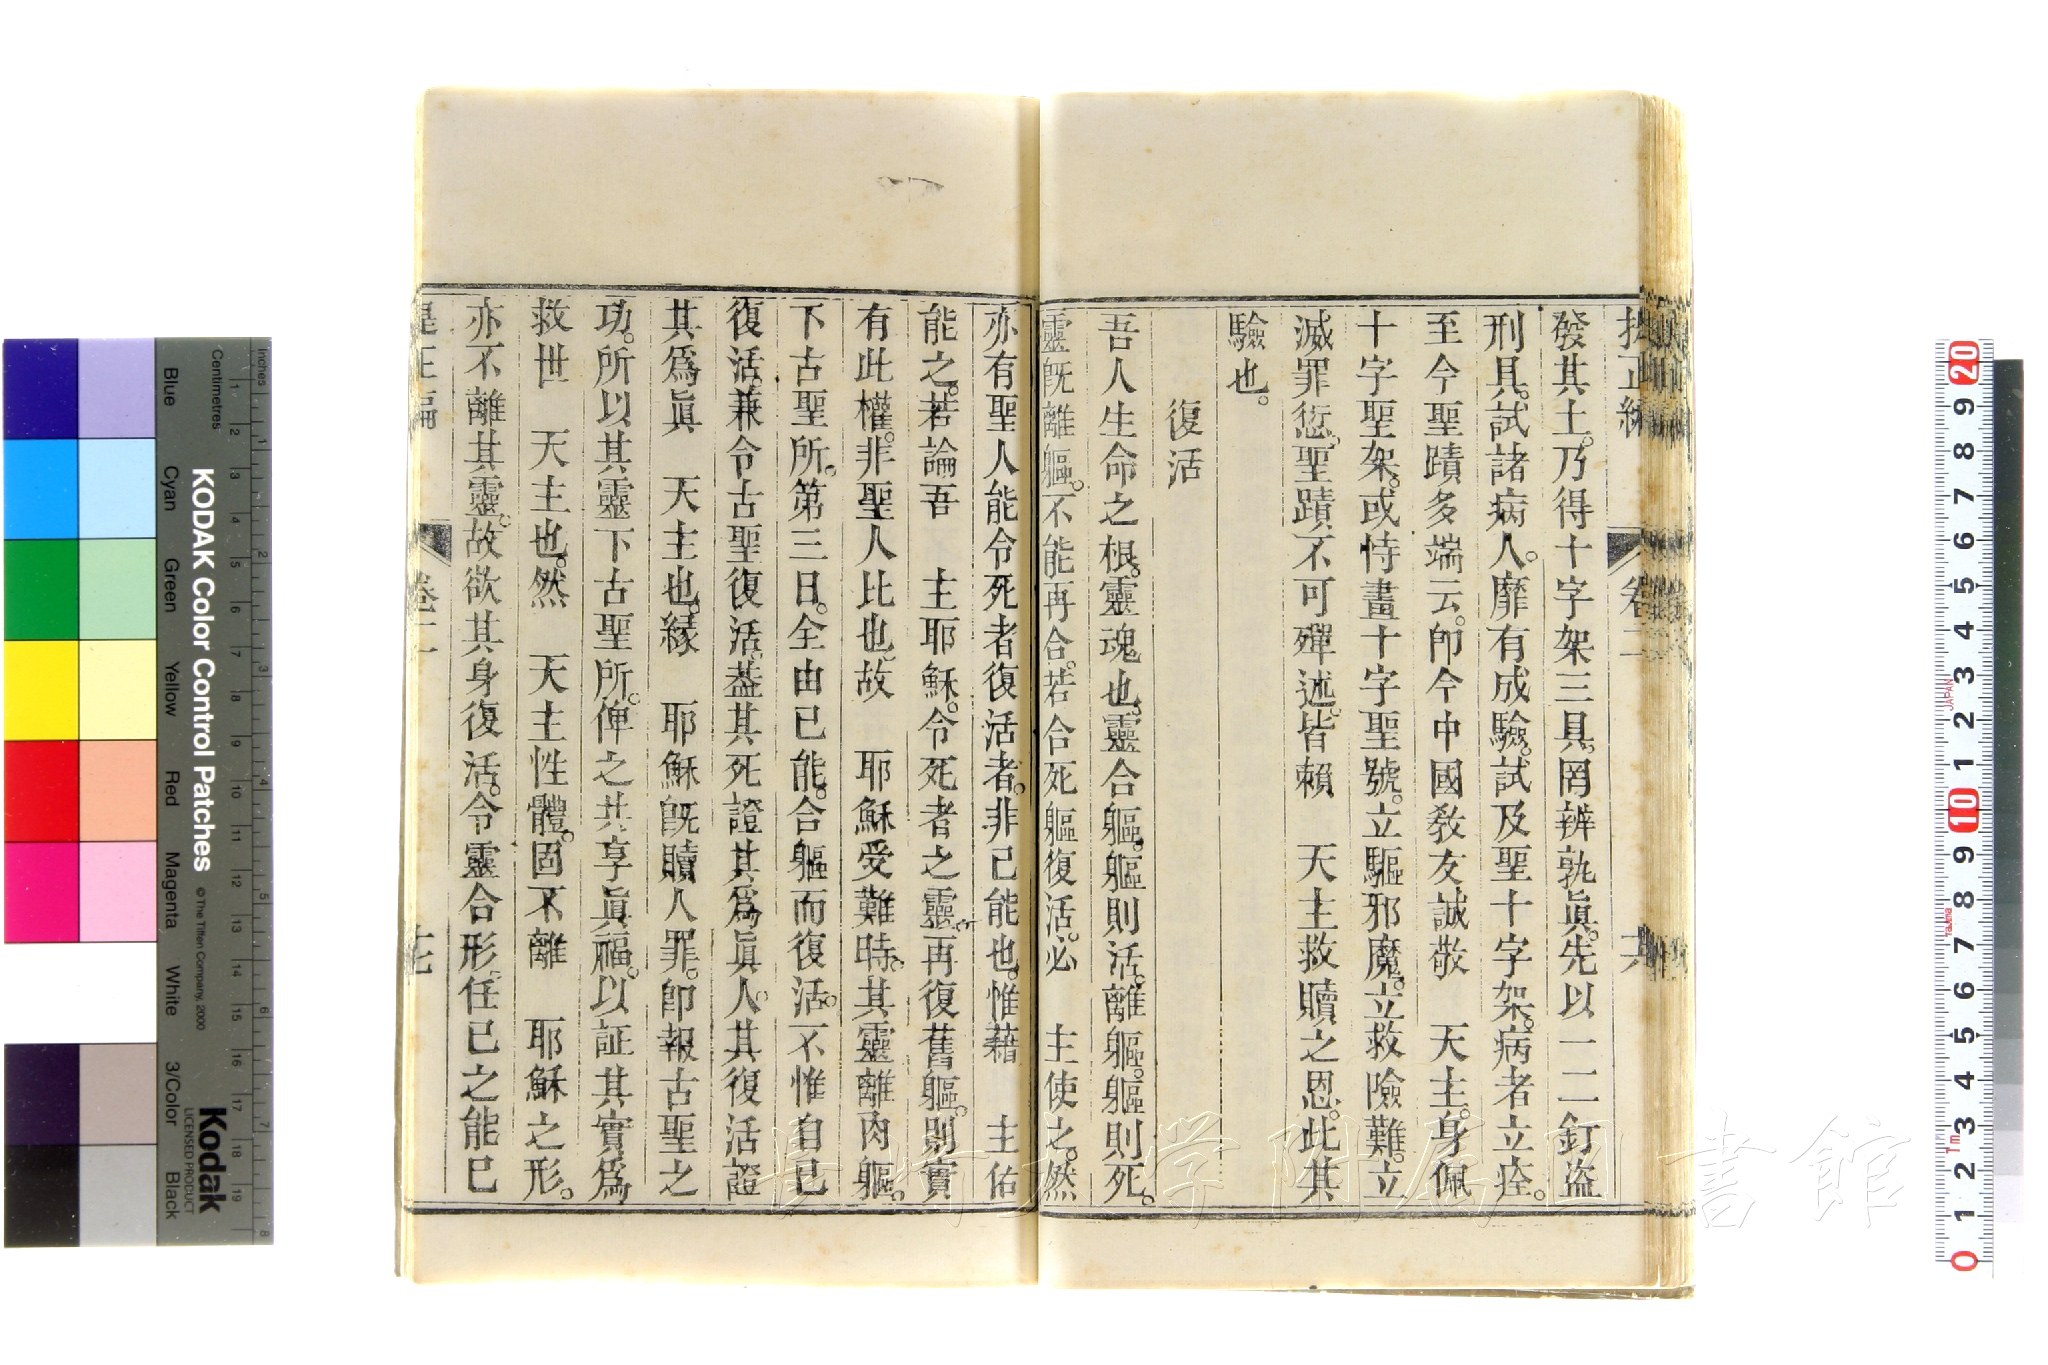 發其土。乃得十字架三具。罔辨孰眞。先以一二釘盜
刑具。試諸病人。靡有成驗。試及聖十字架。病者立痊。
至今聖蹟多端云。卽今中國敎友誠敬　天主。身佩
十字聖架。或恃畫十字聖號。立驅邪魔。立救險難。立
滅罪愆。聖蹟不可殫述。皆賴　天主救贖之恩。此其
驗也。
復活
吾人生命之根。靈魂也。靈合軀。軀則活。離軀。軀則死。
靈旣離軀。不能再合。若合死軀復活。必　主使之。然
亦有聖人能令死者復活者。非己能也。惟藉　主佑
能之。若論吾　主耶穌。令死者之靈。再復舊軀。則實
有此權。非聖人比也。故　耶穌受難時。其靈離肉軀。
下古聖所。第三日。全由已能。合軀而復活。不惟自已
復活。兼令古聖復活。葢其死證其爲眞人。其復活證
其爲眞　天主也。緣　耶穌旣贖人罪。卽報古聖之
功。所以其靈下古聖所。俾之共享眞福。以証其實爲
救世　天主也。然　天主性體。固不離　耶穌之形。
亦不離其靈。故欲其身復活。令靈合形。任已之能已
卷二
KODAK Color Control Patches
© The Tiffen Company, 2000
Kodak
LICENSED PRODUCT
Inches
Centimetres
Blue
Cyan
Green
Yellow
Red
Magenta
White
3/Color
Black
JAPAN
長崎大学附属図書館